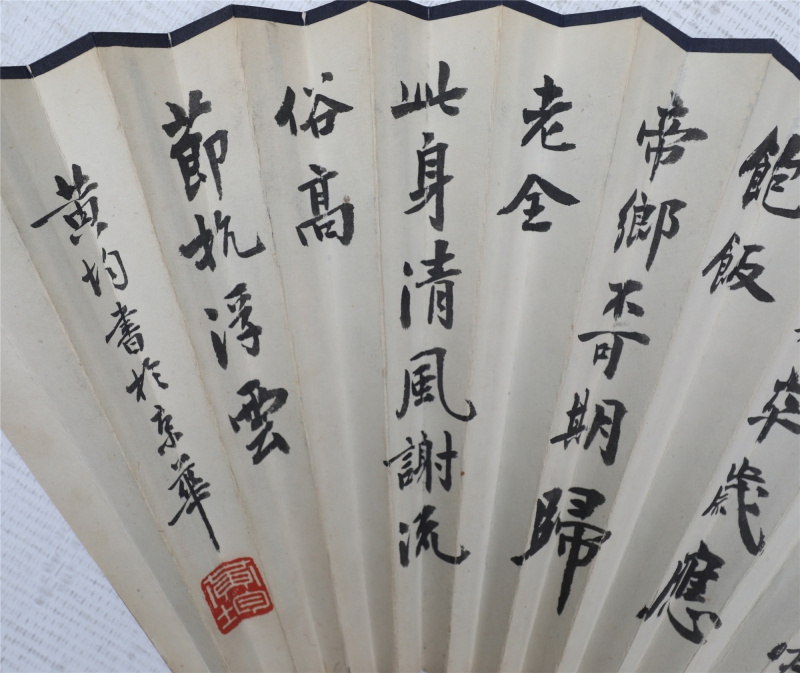 歲應
飽飯
帝鄉不可期歸
老全
此身清風謝流
俗高
節抗浮雲
黃均書於京華
黃均